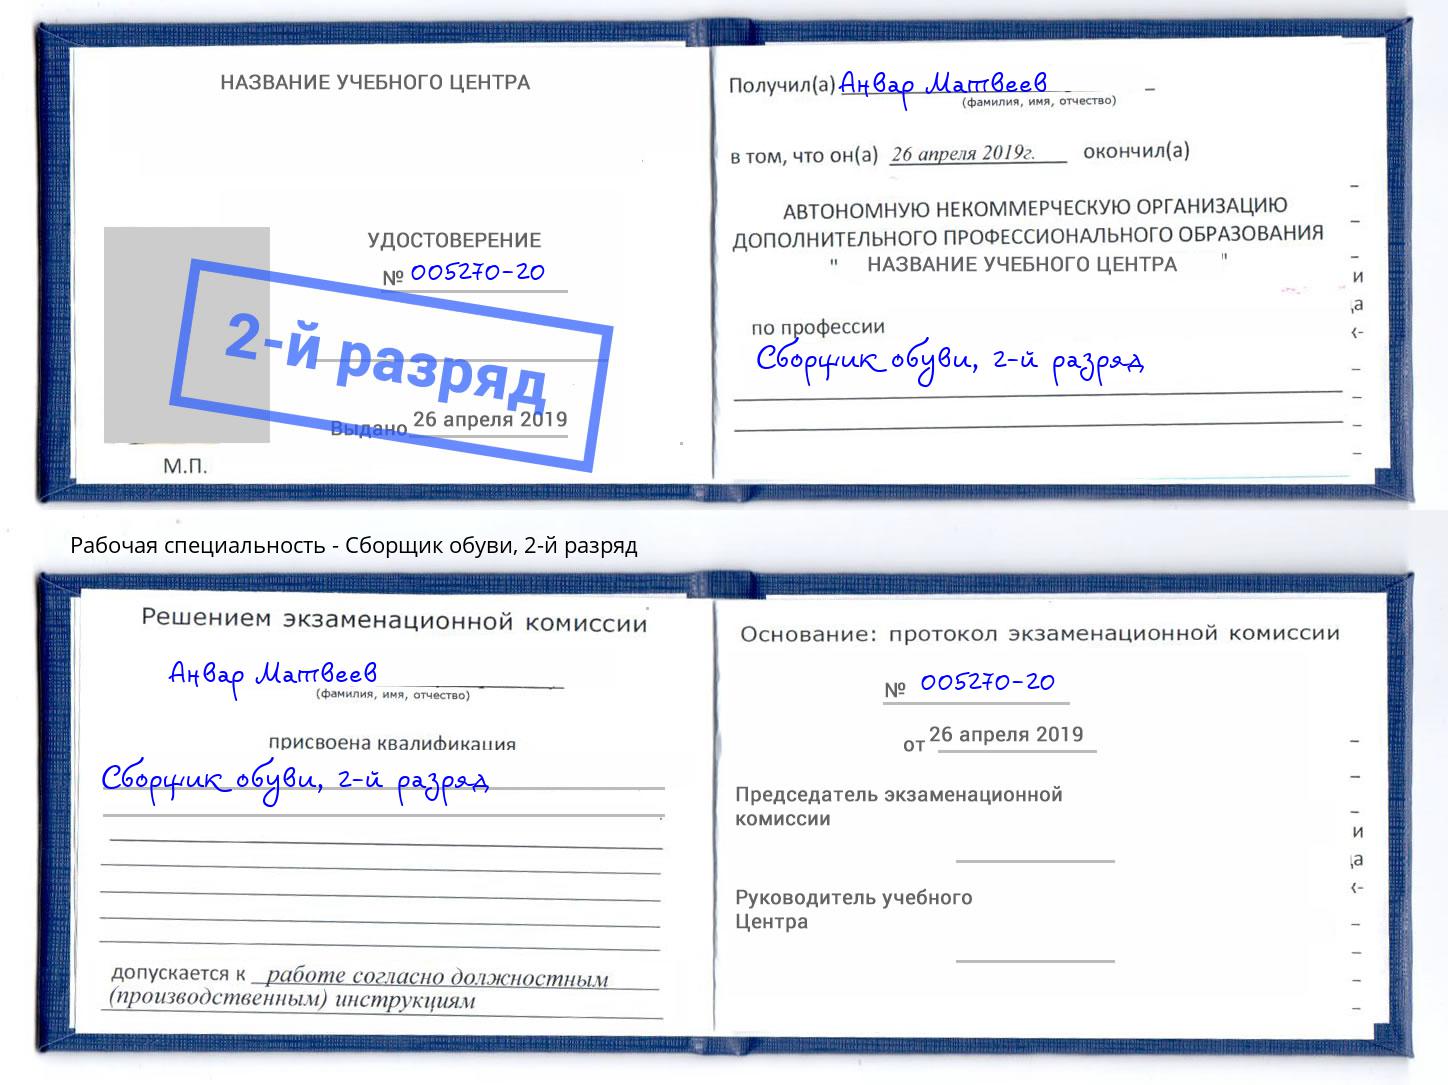 НАЗВАНИЕ УЧЕБНОГО ЦЕНТРА
УДОСТОВЕРЕНИЕ
№ 005270-20
2-й разряд
Выдано 26 апреля 2019
М.П.
Получил(а) Анвар Матвеев
(фамилия, имя, отчество)
в том, что он(а) 26 апреля 2019г. окончил(а)
АВТОНОМНУЮ НЕКОММЕРЧЕСКУЮ ОРГАНИЗАЦИЮ
ДОПОЛНИТЕЛЬНОГО ПРОФЕССИОНАЛЬНОГО ОБРАЗОВАНИЯ
" НАЗВАНИЕ УЧЕБНОГО ЦЕНТРА "
по профессии
Сборщик обуви, 2-й разряд
Рабочая специальность - Сборщик обуви, 2-й разряд
Решением экзаменационной комиссии
Анвар Матвеев
(фамилия, имя, отчество)
присвоена квалификация
Сборщик обуви, 2-й разряд
допускается к работе согласно должностным
(производственным) инструкциям
Основание: протокол экзаменационной комиссии
№ 005270-20
от 26 апреля 2019
Председатель экзаменационной
комиссии
Руководитель учебного
Центра